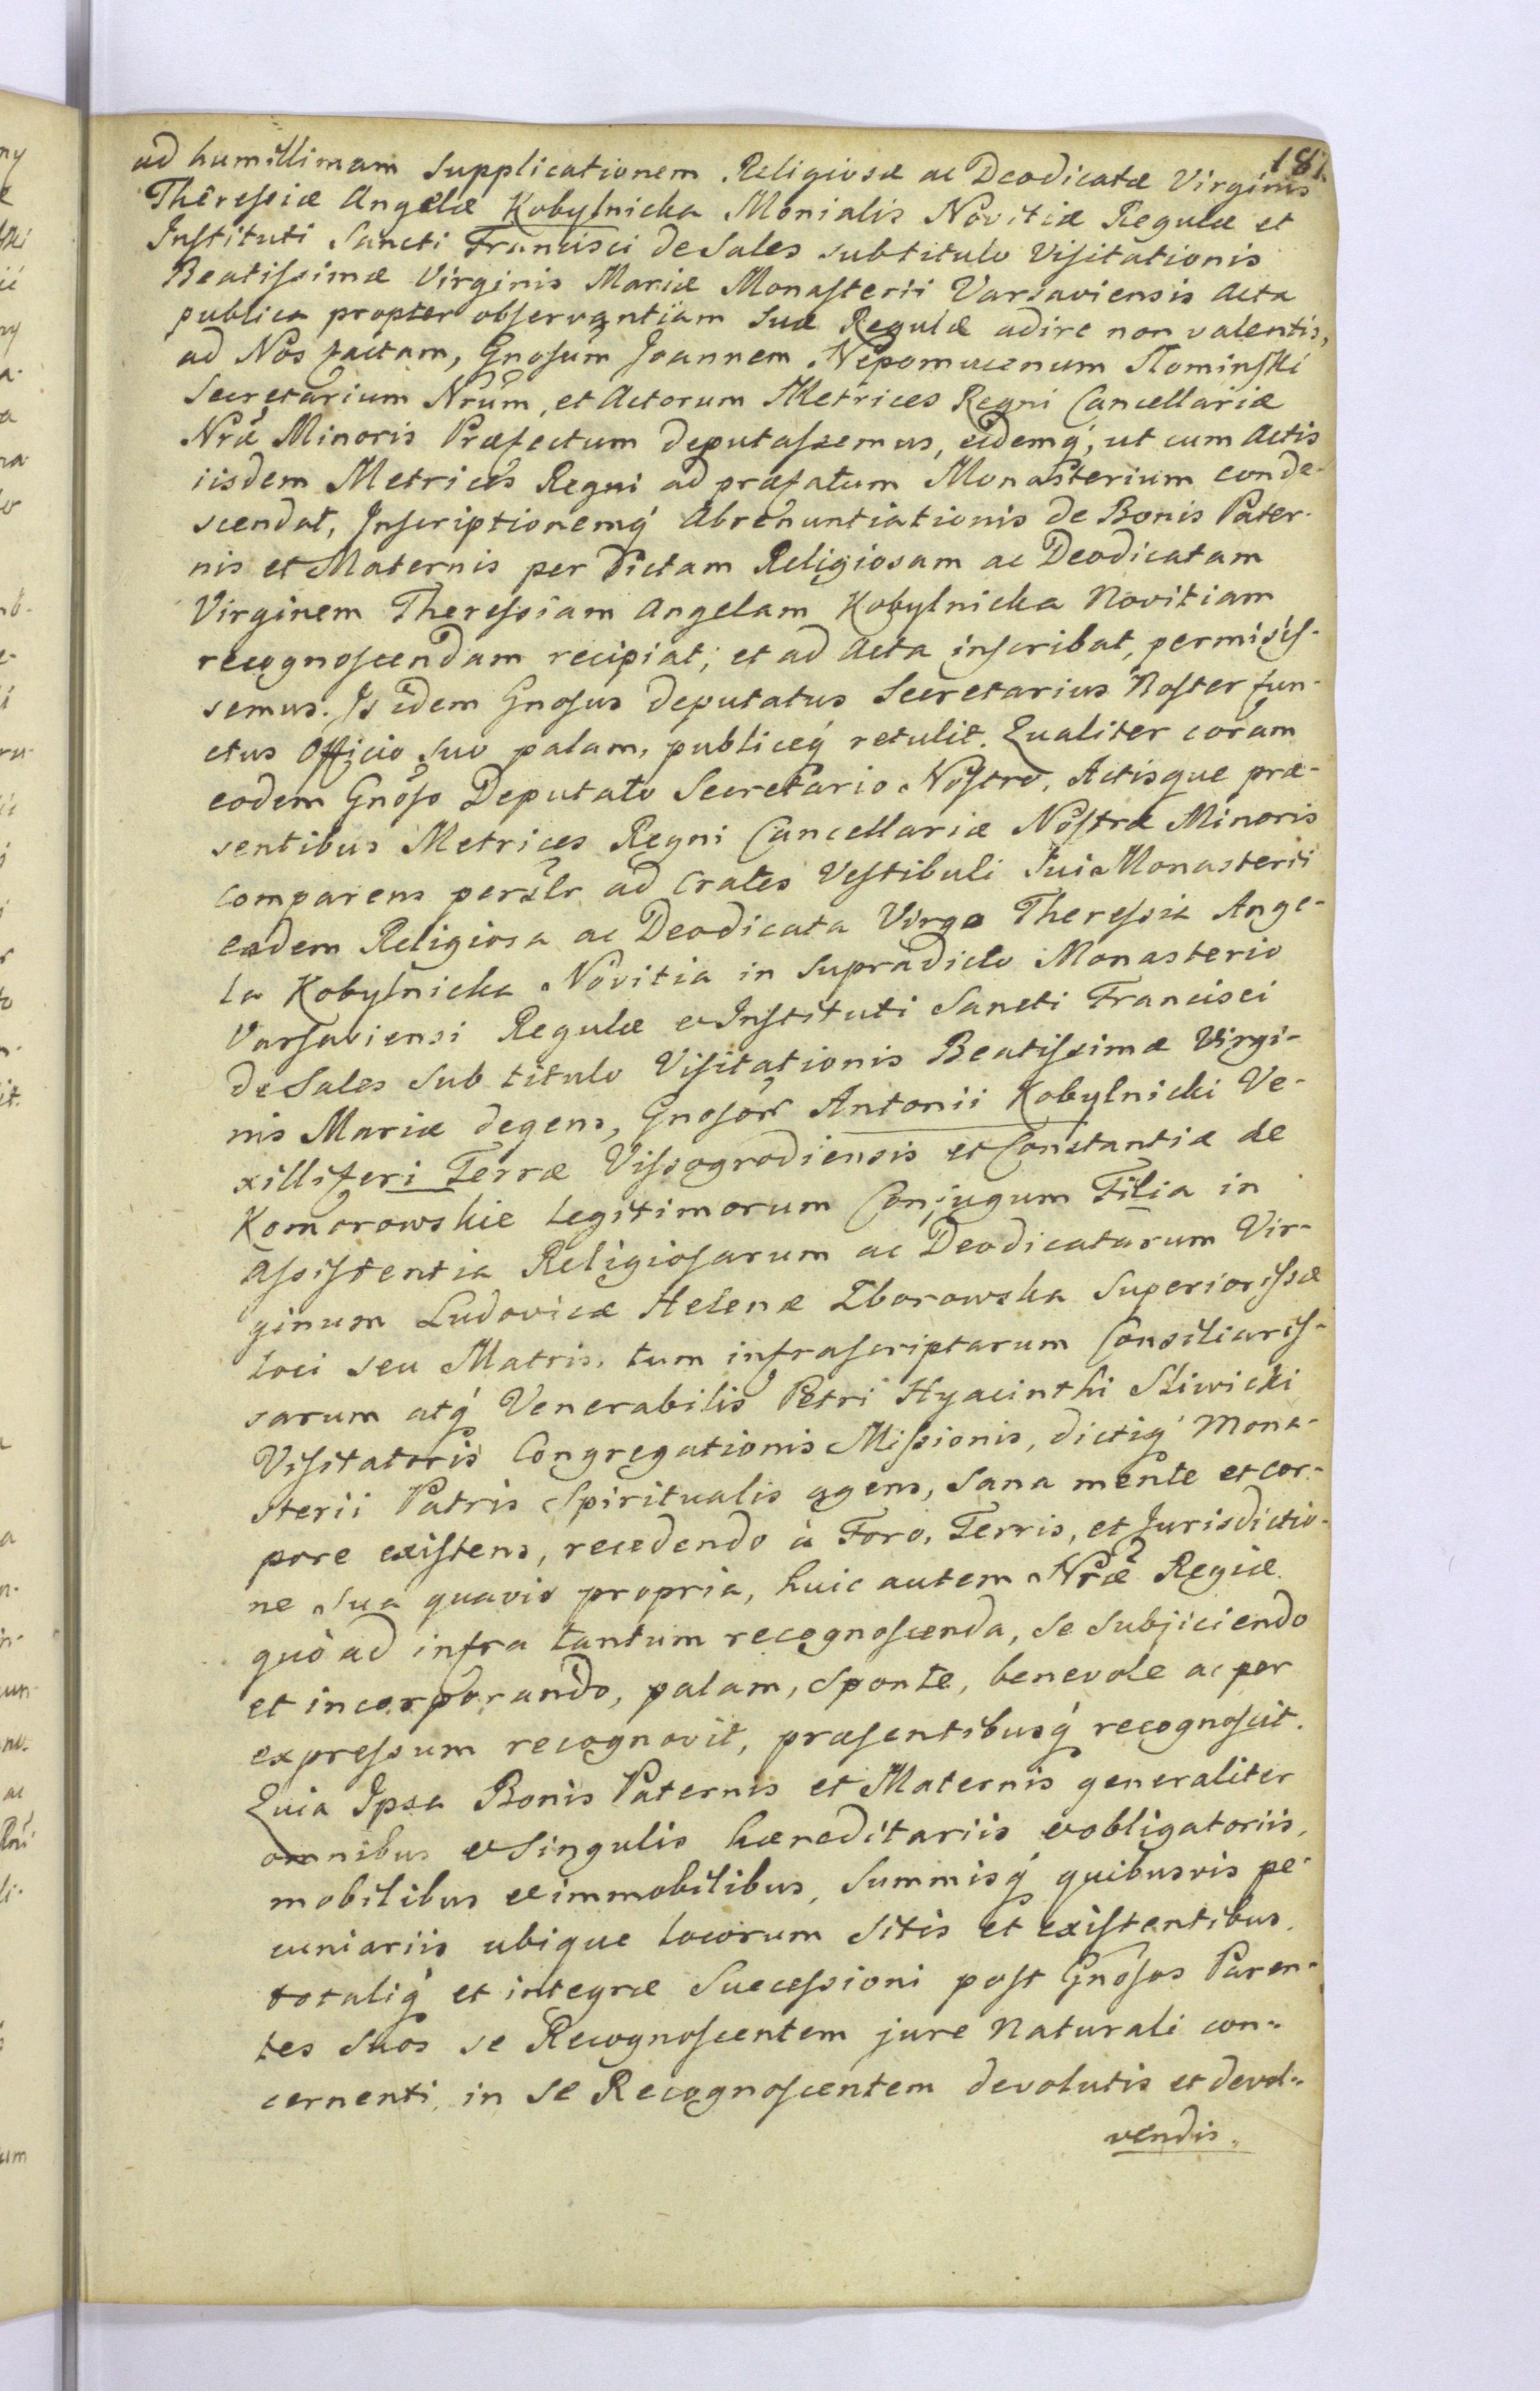 187.
ad humillimam Supplicationem Religiosæ ac Deodicatæ Virginis
Theressiæ Angelæ Kobylnicka Monialis Novitiæ Regulæ et
Instituti Sancti Francisci de Sales subtitulo Visitationis
Beatissimæ Virginis Mariæ Monasterii Varsaviensis Acta
publica propter observantiam suæ Regulæ adire non valentis,
ad Nos factam, Gnosum Joannem Nepomucenum Słominski
Secretarium Nrum, et Actorum Metrices Regni Cancellariæ
Nræ Minoris Præfectum deputassemus, eidemq́, ut cum Actis
iisdem Metrices Regni ad præfatum Monasterium conde-
scendat, Inscriptionemq́ Abrenuntiationis de Bonis Pater-
nis et Maternis per dictam Religiosam ac Deodicatam
Virginem Theressiam Angelam Kobylnicka Novitiam
recognoscendam recipiat; et ad Acta inscribat, permisis-
semus. Is idem Gnosus deputatus Secretarius Noster fun-
ctus Officio suo palam, publiceq́ retulit. Qualiter coram
eodem Gnoso Deputato Secretario Nostro, Actisque præ-
sentibus Metrices Regni Cancellariæ Nostræ Minoris
comparens persлr ad Crates Vestibuli sui Monasterii
eadem Religiosa ac Deodicata Virgo Theressia Ange-
la Kobylnicka Novitia in supradicto Monasterio
Varsaviensi Regulæ et Instituti Sancti Francisci
de Sales sub titulo Visitationis Beatissimæ Virgi-
nis Mariæ degens, Gnosor Antonii Kobylnicki Ve-
xilliferi Terræ Vissogrodiensis et Constantiæ de
Komorowskie legitimorum Conjugum Filia in
Assistentia Religiosarum ac Deodicatarum Vir-
ginum Ludovicæ Helenæ Zborowska Superiorissæ
loci seu Matris, tum infrascriptarum Consiliaris-
sarum atq́ Venerabilis Petri Hyacinthi Sliwicki
Visitatoris Congregationis Missionis, dictiq́ Mona-
sterii Patris Spiritualis agens, Sana mente et cor-
pore existens, recedendo à Foro, Terris, et Jurisdictio-
ne sua quavis propria, huic autem Nræ Regiæ
quò ad infra tantum recognoscenda, se subjiciendo
et incorporando, palam, sponte, benevole ac per
expressum recognovit, præsentibusq́ recognoscit.
Quia Ipsa Bonis Paternis et Maternis generaliter
omnibus et singulis hæreditariis et obligatoriis,
mobilibus et immobilibus, summisq́ quibusvis pe-
cuniariis ubique locorum sitis et existentibus,
totaliq́ et integræ Successioni post Gnosos Paren-
tes suos se Recognoscentem jure Naturali con-
cernenti, in se Recognoscentem devolutis et devol-
vendis,